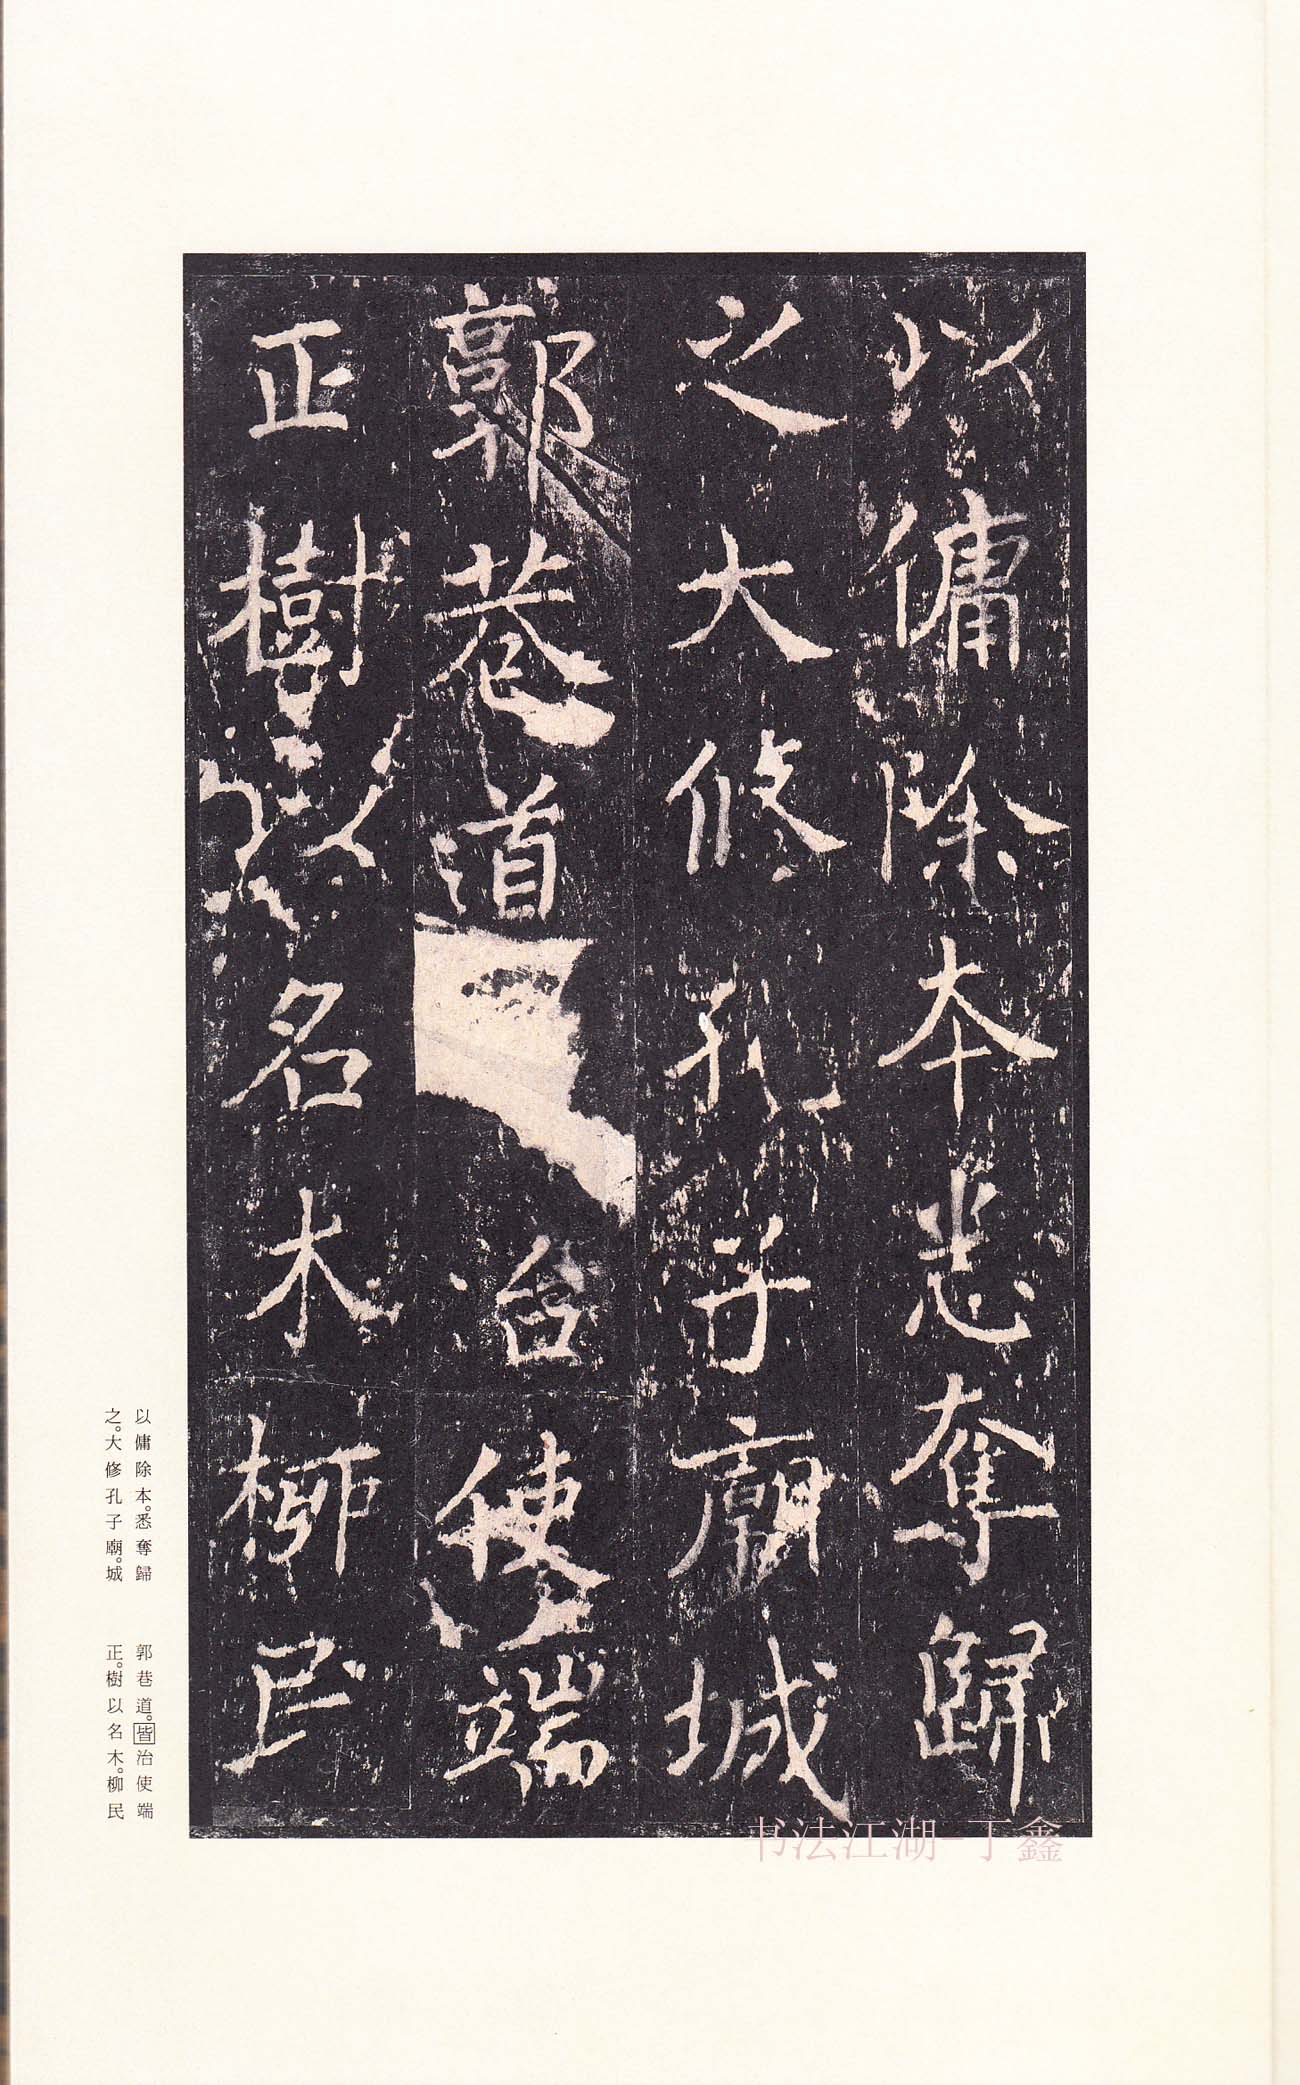 以傭除本悉奪歸
之大修孔子廟城
郭巷道治使端
正樹以名木柳民
以傭除本。悉奪歸
之。大修孔子廟。城
郭巷道。皆治使端
正。樹以名木。柳民
书法江湖-丁鑫